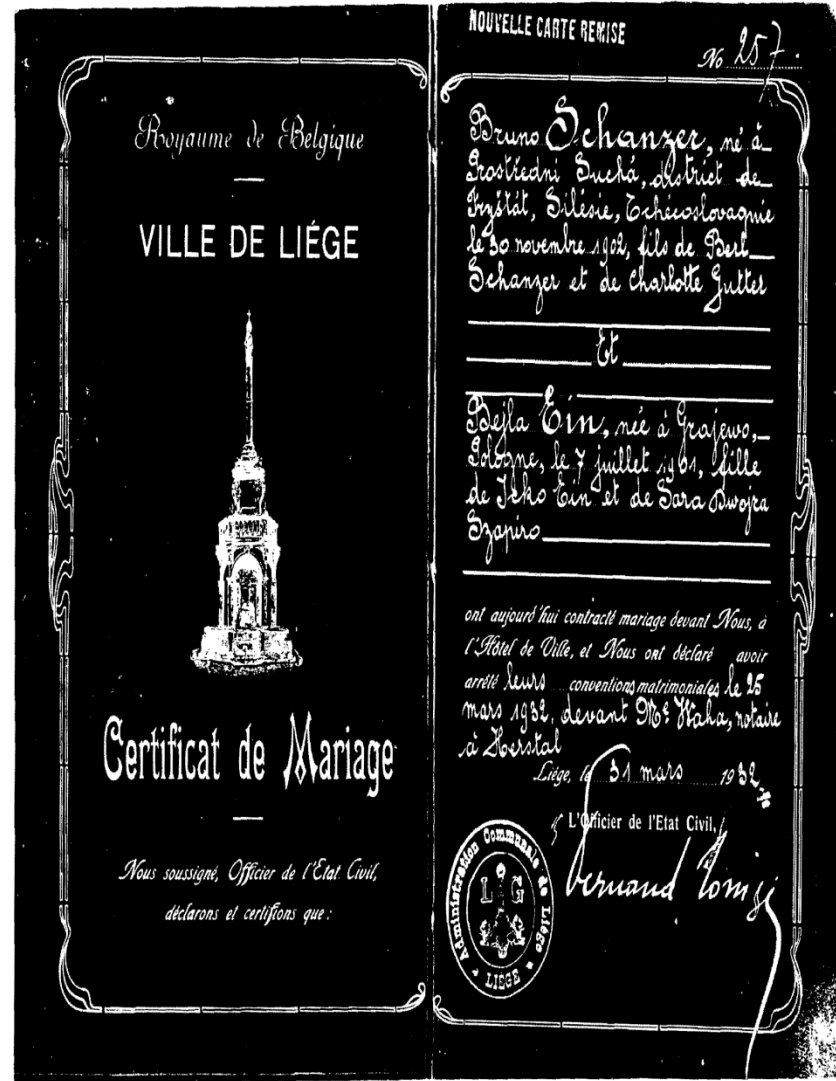 Royaume de Belgique
VILLE DE LIÉGE
Certificat de Mariage
Nous soussigné, Officier de l'Etat Civil,
déclarons et certifions que :
NOUVELLE CARTE REMISE
No 257.
Bruno Schanzer, né à
Prostředni Suchá, district de
Fryštát, Silésie, Tchécoslovaquie
le 30 novembre 1902, fils de Berl
Schanzer et de Charlotte Gutter
Et
Bejla Ein, née à Grajewo,
Pologne, le 7 juillet 1901, fille
de Icko Ein et de Sara Dwojra
Szapiro
ont aujourd'hui contracté mariage devant Nous, à
l'Hôtel de Ville, et Nous ont déclaré avoir
arrêté leurs conventions matrimoniales le 25
mars 1932, devant Me Waha, notaire
à Herstal
Liége, le 31 mars 1932
L'Officier de l'Etat Civil,
Administration Communale de Liége
L G
LIEGE